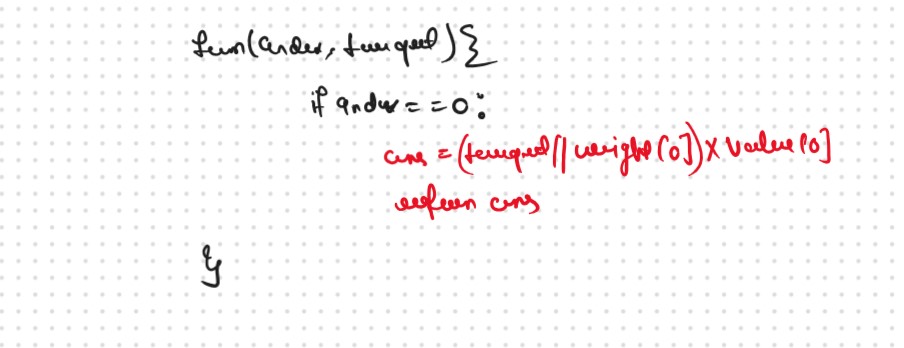 fun(index, target){
if index = = 0:
ans = (target // weight[0]) x value[0]
return ans
}